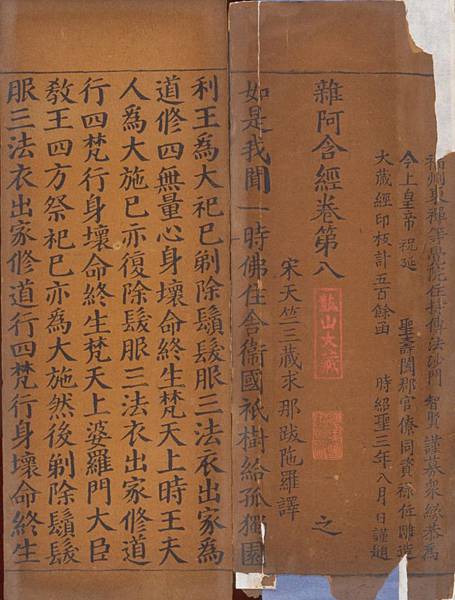 福州東禪等覺院住持傳法沙門 智賢 謹募衆緣恭爲
今上皇帝祝延 聖壽闔郡官僚同資祿位雕造
大藏經印板計五百餘函 時紹聖三年八月 日謹題
雜阿含經卷第八 鼓山大藏 之
宋天竺三藏求那跋陁羅譯
如是我聞一時佛住舍衛國祇樹給孤獨園
利王爲大祀已剃除鬚髮服三法衣出家爲
道修四無量心身壞命終生梵天上時王夫
人爲大施已亦復除髮服三法衣出家修道
行四梵行身壞命終生梵天上婆羅門大臣
教王四方祭祀已亦爲大施然後剃除鬚髮
服三法衣出家修道行四梵行身壞命終生